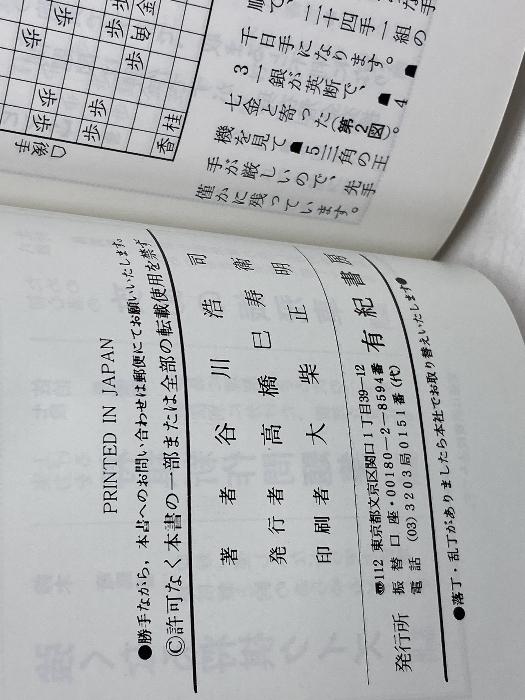 の手
で、
二十四手一組
千日手になります。
3一銀が英断で、☗4
七金と寄った(第2図)。
機を見て☗5三角の王
手が厳しいので、先手
僅かに残っています。
歩
金
歩
歩
角
歩
歩
歩
歩
歩
歩
桂
香
後手
PRINTED IN JAPAN
●勝手ながら，本書へのお問い合わせは郵便にてお願いいたします。
Ⓒ許可なく本書の一部または全部の転載使用を禁ず
著者 谷川浩司
発行者 高橋巳寿衛
印刷者 大柴正明
発行所 有紀書房
〠112 東京都文京区関口1丁目39−12
振替口座・00180−2−8594番
電話 (03)3203局0151番(代)
●落丁・乱丁がありましたら本社でお取り替えいたします●